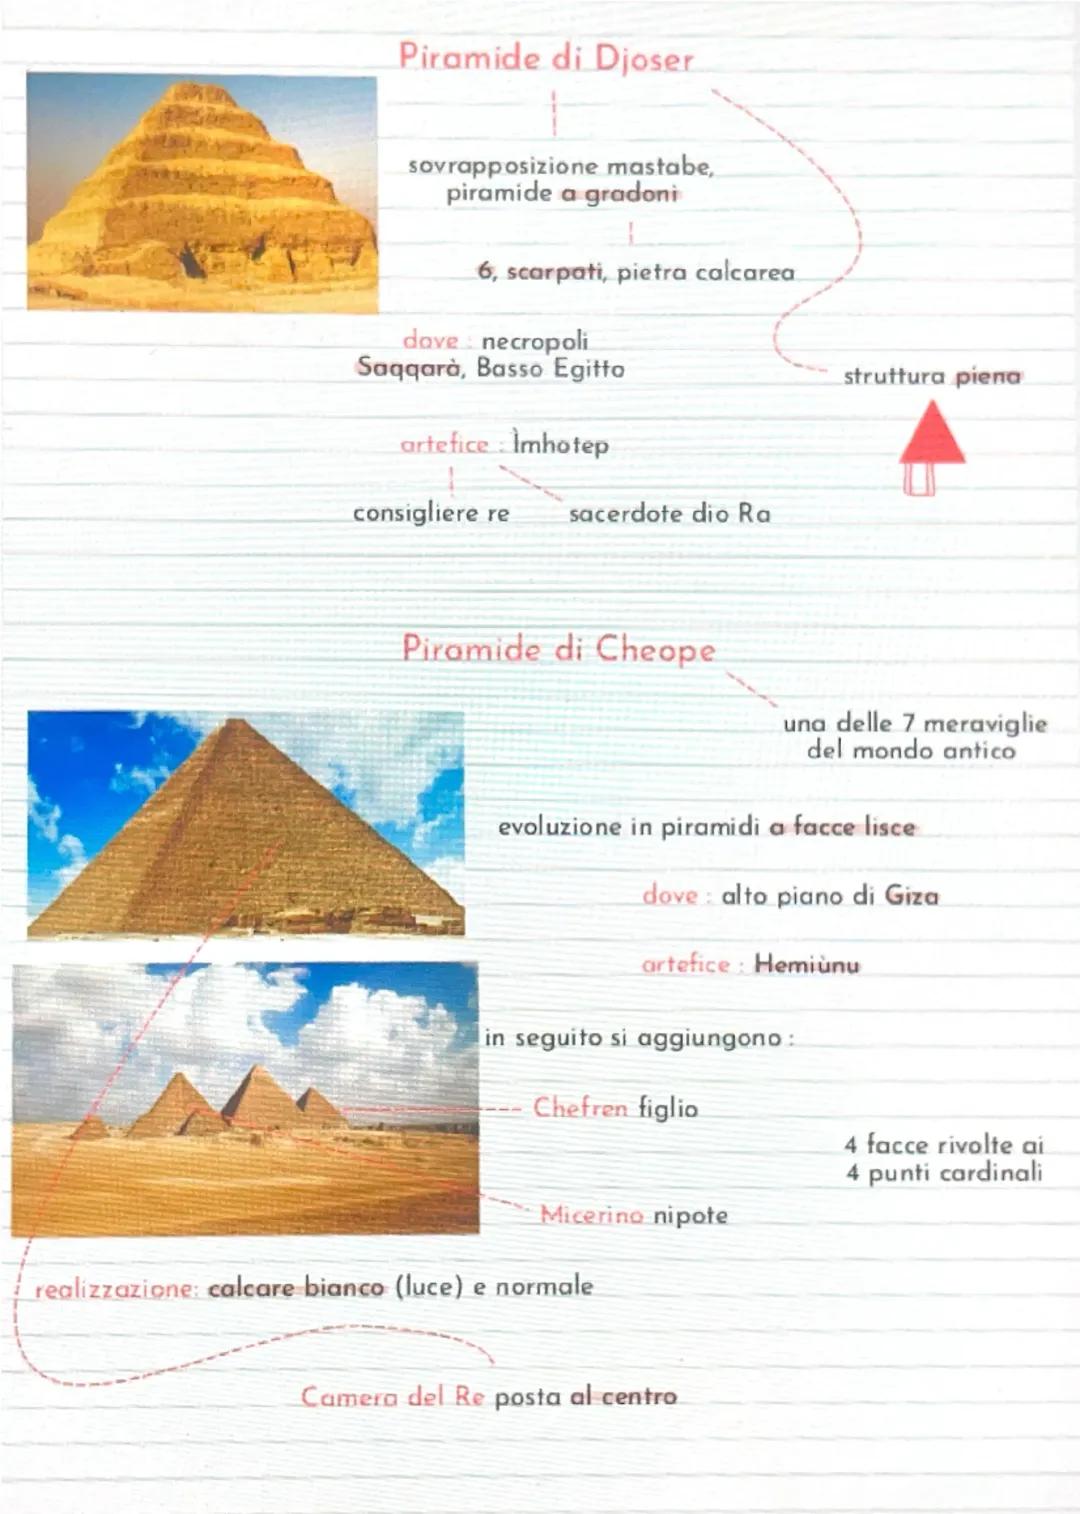 Piramide di Djoser
sovrapposizione mastabe,
piramide a gradoni
6, scarpati, pietra calcarea
dove : necropoli
Saqqarà, Basso Egitto
struttura piena
artefice : Ìmhotep
consigliere re
sacerdote dio Ra
Piramide di Cheope
una delle 7 meraviglie
del mondo antico
evoluzione in piramidi a facce lisce
dove : alto piano di Giza
artefice : Hemiùnu
in seguito si aggiungono :
Chefren figlio
4 facce rivolte ai
4 punti cardinali
Micerino nipote
realizzazione: calcare bianco (luce) e normale
Camera del Re posta al centro